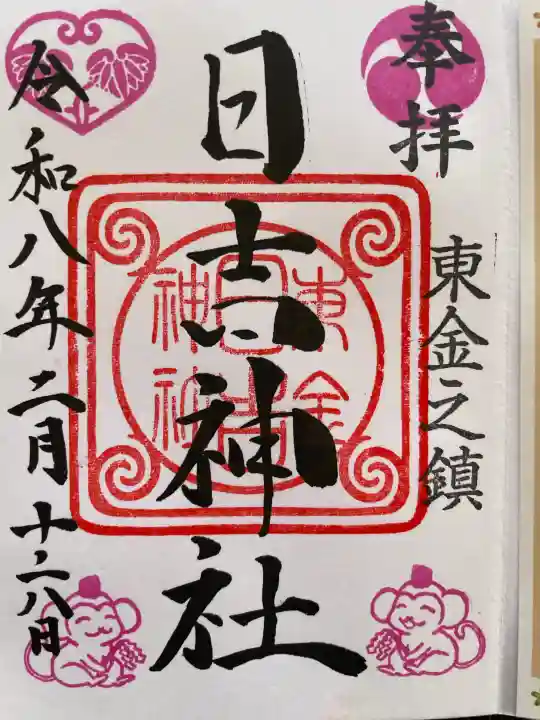 奉拝
東金之鎮
日吉神社
東金
日吉
神社
令和八年二月十六日